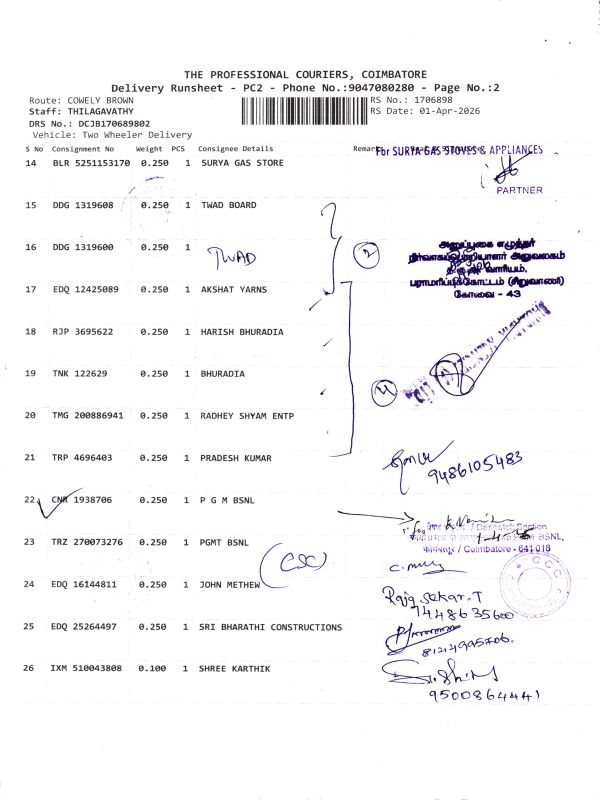 THE PROFESSIONAL COURIERS, COIMBATORE
Delivery Runsheet - PC2 - Phone No.:9047080280 - Page No.:2
Route: COWELY BROWN RS No.: 1706898
Staff: THILAGAVATHY RS Date: 01-Apr-2026
DRS No.: DCJB1706889802
Vehicle: Two Wheeler Delivery
S No Consignment No Weight PCS Consignee Details
For SURYA GAS STOVES & APPLIANCES
14 BLR 5251153170 0.250 1 SURYA GAS STORE
PARTNER
15 DDG 1319608 0.250 1 TWAD BOARD
16 DDG 1319600 0.250 1 TWAD
2
அனுப்புகை எழுத்தர்
நிர்வாகப்பொறியாளர் அலுவலகம்
த.கு.வ. வாரியம்,
பராமரிப்புகோட்டம் (சிறுவாணி)
கோவை - 43
17 EDQ 12425089 0.250 1 AKSHAT YARNS
18 RJP 3695622 0.250 1 HARISH BHURADIA
19 TNK 122629 0.250 1 BHURADIA
20 TMG 200886941 0.250 1 RADHEY SHYAM ENTP
21 TRP 4696403 0.250 1 PRADESH KUMAR
9486105483
22 CNR 1938706 0.250 1 P G M BSNL
/ Despatch Section
BSNL,
/ Coimbatore - 641 018
23 TRZ 270073276 0.250 1 PGMT BSNL
(CSC)
24 EDQ 16144811 0.250 1 JOHN METHEW
Raja Sekar.T
7448635600
25 EDQ 25264497 0.250 1 SRI BHARATHI CONSTRUCTIONS
26 IXM 510043808 0.100 1 SHREE KARTHIK
9500864441